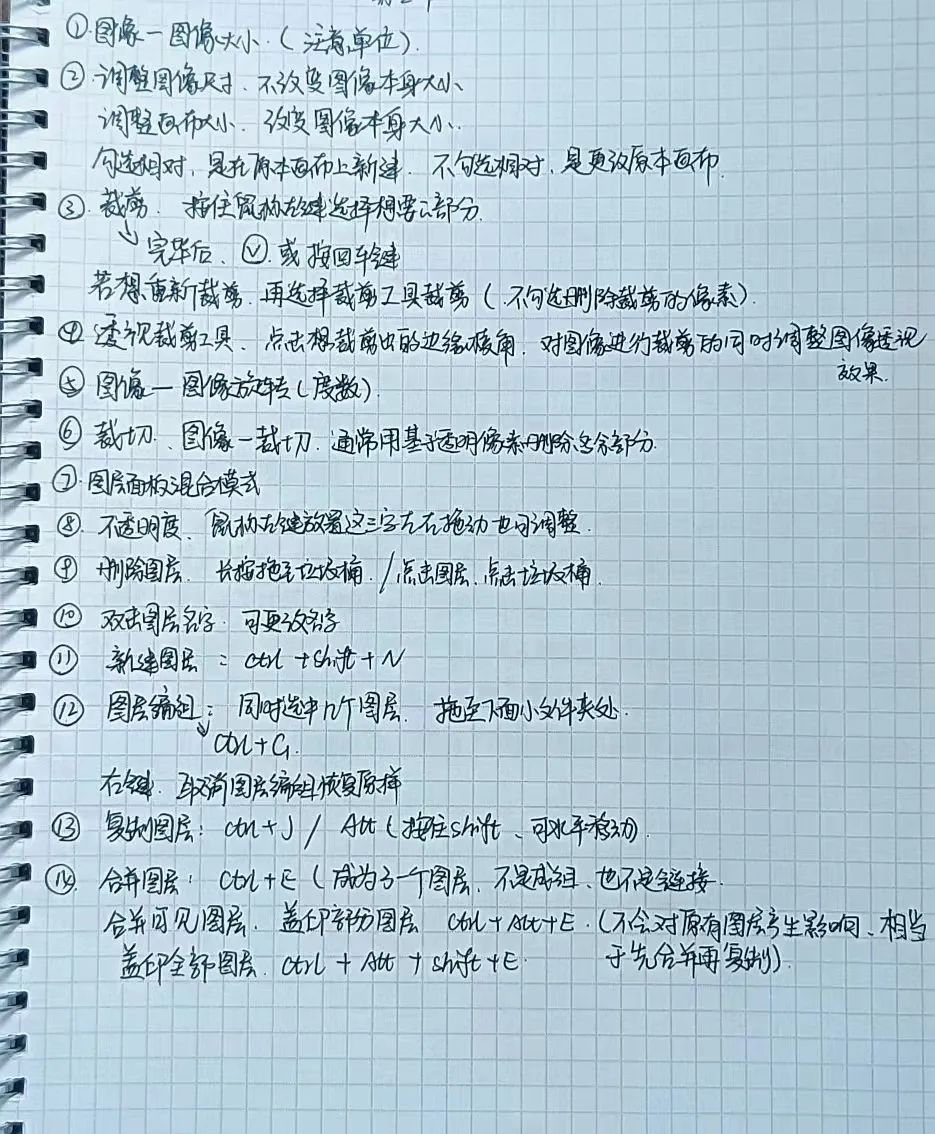 ① 图像一图像大小.(注意单位).
② 调整图像尺寸.不改变图像本身大小.
调整画布大小.改变图像本身大小.
勾选相对,是在原本画布上新建.不勾选相对,是更改原本画布.
③.裁剪.按住鼠标左键选择想要的部分.
↓完毕后、Ⓥ.或按回车键
若想重新裁剪.再选择裁剪工具裁剪(不勾选删除裁剪的像素).
④ 透视裁剪工具、点击想裁剪出的边缘棱角.对图像进行裁剪的同时调整图像透视
效果.
⑤ 图像一图像旋转(度数).
⑥ 裁切.图像一裁切.通常用基于透明像素删除多余部分.
⑦.图层面板混合模式
⑧.不透明度、鼠标左键放置这三字左右拖动也可调整.
⑨ 删除图层.长按拖至垃圾桶./点击图层.点击垃圾桶.
⑩ 双击图层名字.可更改名字
⑪ 新建图层:ctrl+shift+N
⑫ 图层编组:同时选中n个图层.拖至下面小文件夹处.
↓ctrl+G.
右键.取消图层编组恢复原样
⑬ 复制图层:ctrl+J / Alt(按住shift、可水平移动).
⑭ 合并图层:ctrl+E(成为了一个图层.不是成组、也不是链接.
合并可见图层.盖印部分图层 ctrl+Alt+E.(不会对原有图层产生影响、相当
盖印全部图层.ctrl+Alt+shift+E. 于先合并再复制).